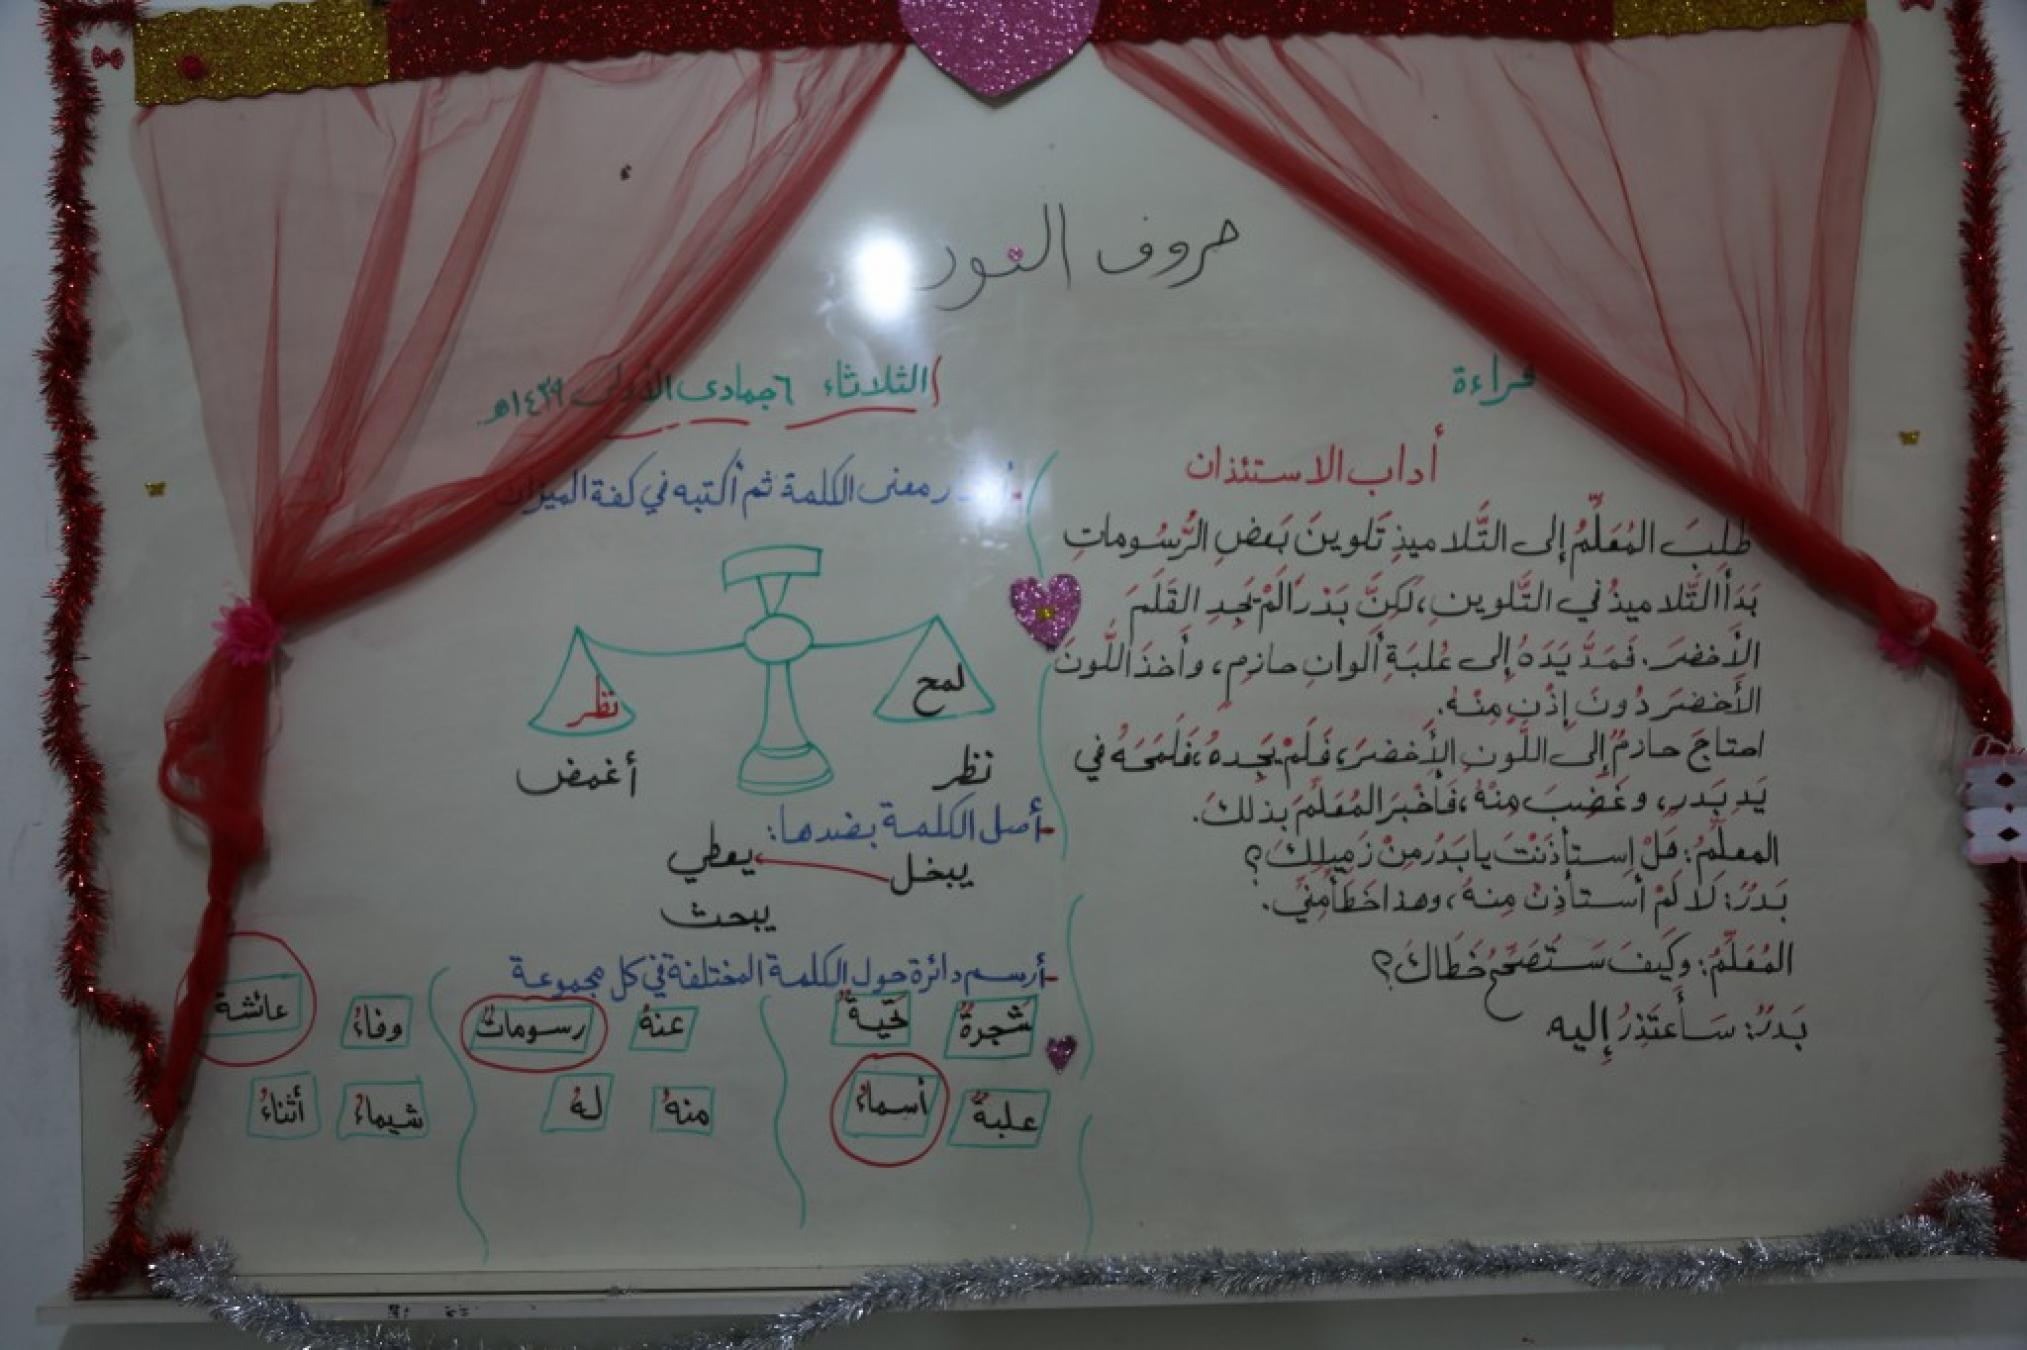 حروف النور
قراءة
الثلاثاء ٦ جمادى الأولى ١٤٣٩هـ
أداب الاستئذان
طَلِبَ المُعَلِّمُ إلى التَّلاميذِ تَلوينَ بَعضِ الرُّسُوماتِ
بَدَأَ التَّلاميذُ في التَّلوينِ، لَكِنَّ بَدْرَاً لَمْ يَجِدِ القَلَمَ
الأَخضَرَ. فَمَدَّ يَدَهُ إلى عُلبَةِ أَلوانِ حازِمٍ، وأَخذَ اللَّونَ
الأَخضَرَ دُونَ إِذْنٍ مِنْهُ.
احتاجَ حازِمٌ إلى اللَّونِ الأَخضَرِ، فَلَمْ يَجِدهُ، فَلَمَحَهُ في
يَدِ بَدرٍ، وغَضِبَ مِنْهُ، فَأَخْبَرَ المُعَلِّمَ بذلكَ.
المعلِّمُ: هَلْ إِستأذَنْتَ يا بَدُر مِنْ زَمِيلِكَ؟
بَدرٌ: لَا لَمْ أستأذِنْ مِنهُ، وهذا خَطَأٌ مِنِّي.
المُعَلِّمُ: وكَيفَ سَتُصَحِّحُ خَطَأكَ؟
بَدرٌ: سَأَعتَذِرُ إِليه
معنى الكلمة ثم أكتبه في كفة الميزان
لمح
نظر
نظر
أغمض
-أصل الكلمة بضدها:
يبخل
يعطي
يبحث
-أرسم دائرة حول الكلمة المختلفة في كل مجموعة
شجرةٌ تحيةٌ
علبةٌ أسماءُ
عنهُ رسوماتٌ
منهُ لهُ
وفاءُ عائشة
شيماءُ أثناءُ